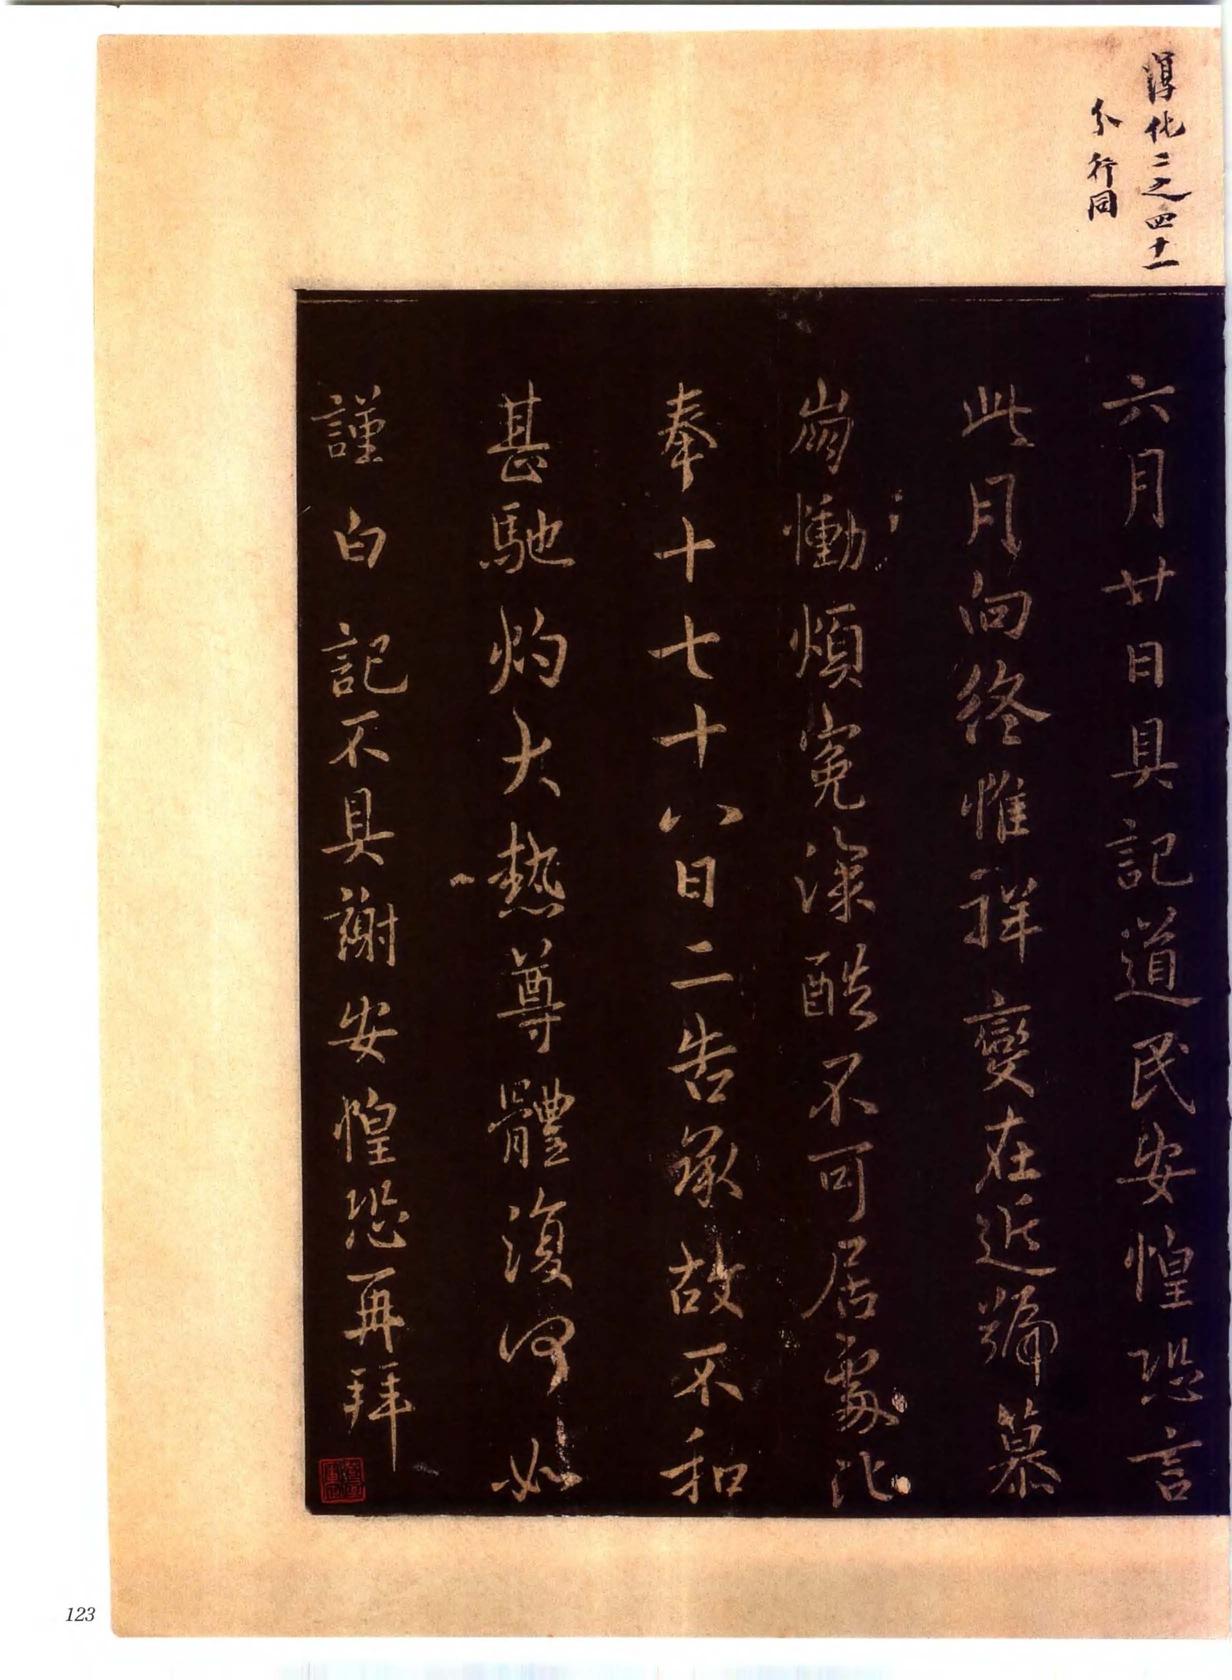 淳化二之四十一
分行同
六月廿日具記道民安惶恐言
此月向終惟祥變在近號慕
崩慟煩冤深酷不可居處比
奉十七十八日二告承故不和
甚馳灼大熱尊體復何如
謹白記不具謝安惶恐再拜
123